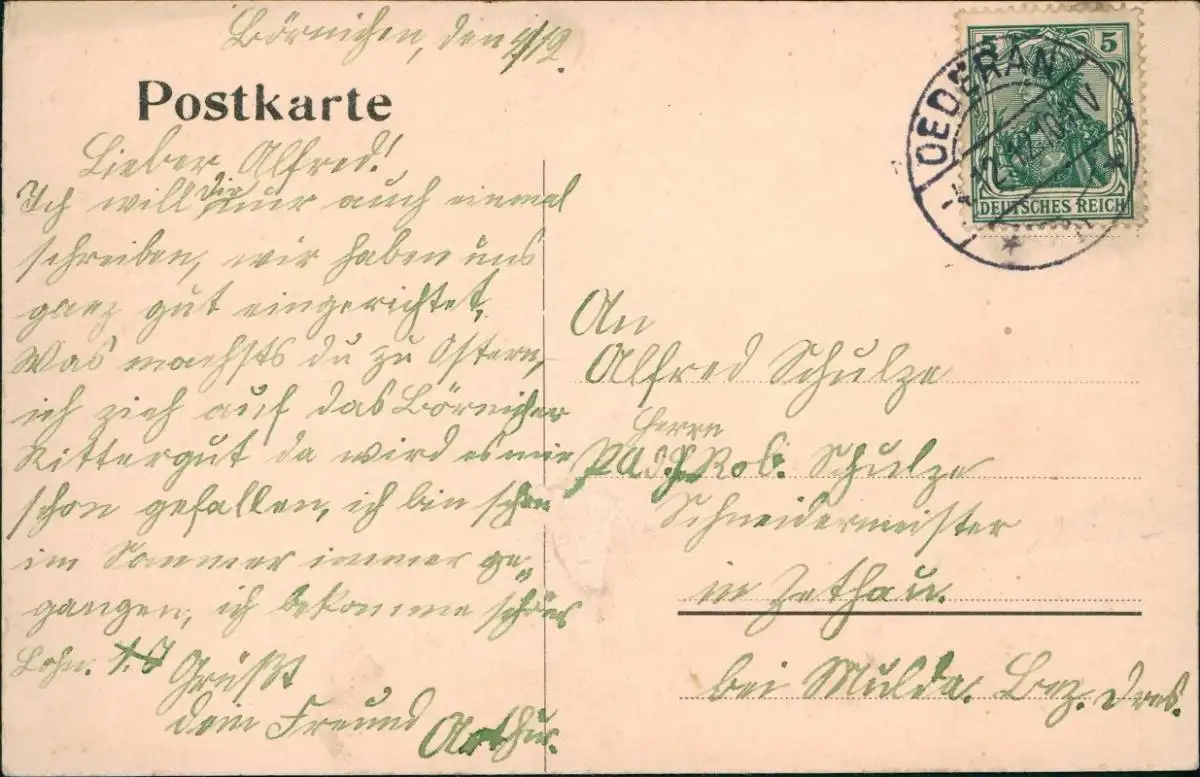 Börnichen, den 4/12.
Postkarte
Lieber Alfred!
Ich will die nur auch einmal
schreiben, wir haben uns
ganz gut eingerichtet.
Was machsts du zu Ostern,
ich zieh auf das Börnicher
Rittergut da wird es mir
schon gefallen, ich bin schon
im Sommer immer ge-
gangen, ich bekomme schöns
Lohn.
Grüßt
dein Freund Arthur.
5 5
DEUTSCHES REICH
OEDERAN
An
Alfred Schulze
Herrn
Rob. Schulze
Schneidermeister
in Zethau.
bei Mulda. Bez. Dres.